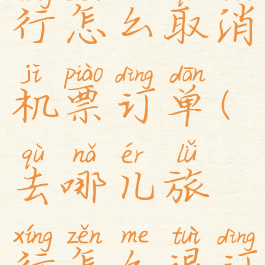 行怎么取消
jī piào dìng dān
机票订单(
qù nǎ ér lǚ
去哪儿旅
xíng zěn me tuì dìng
行怎么退订